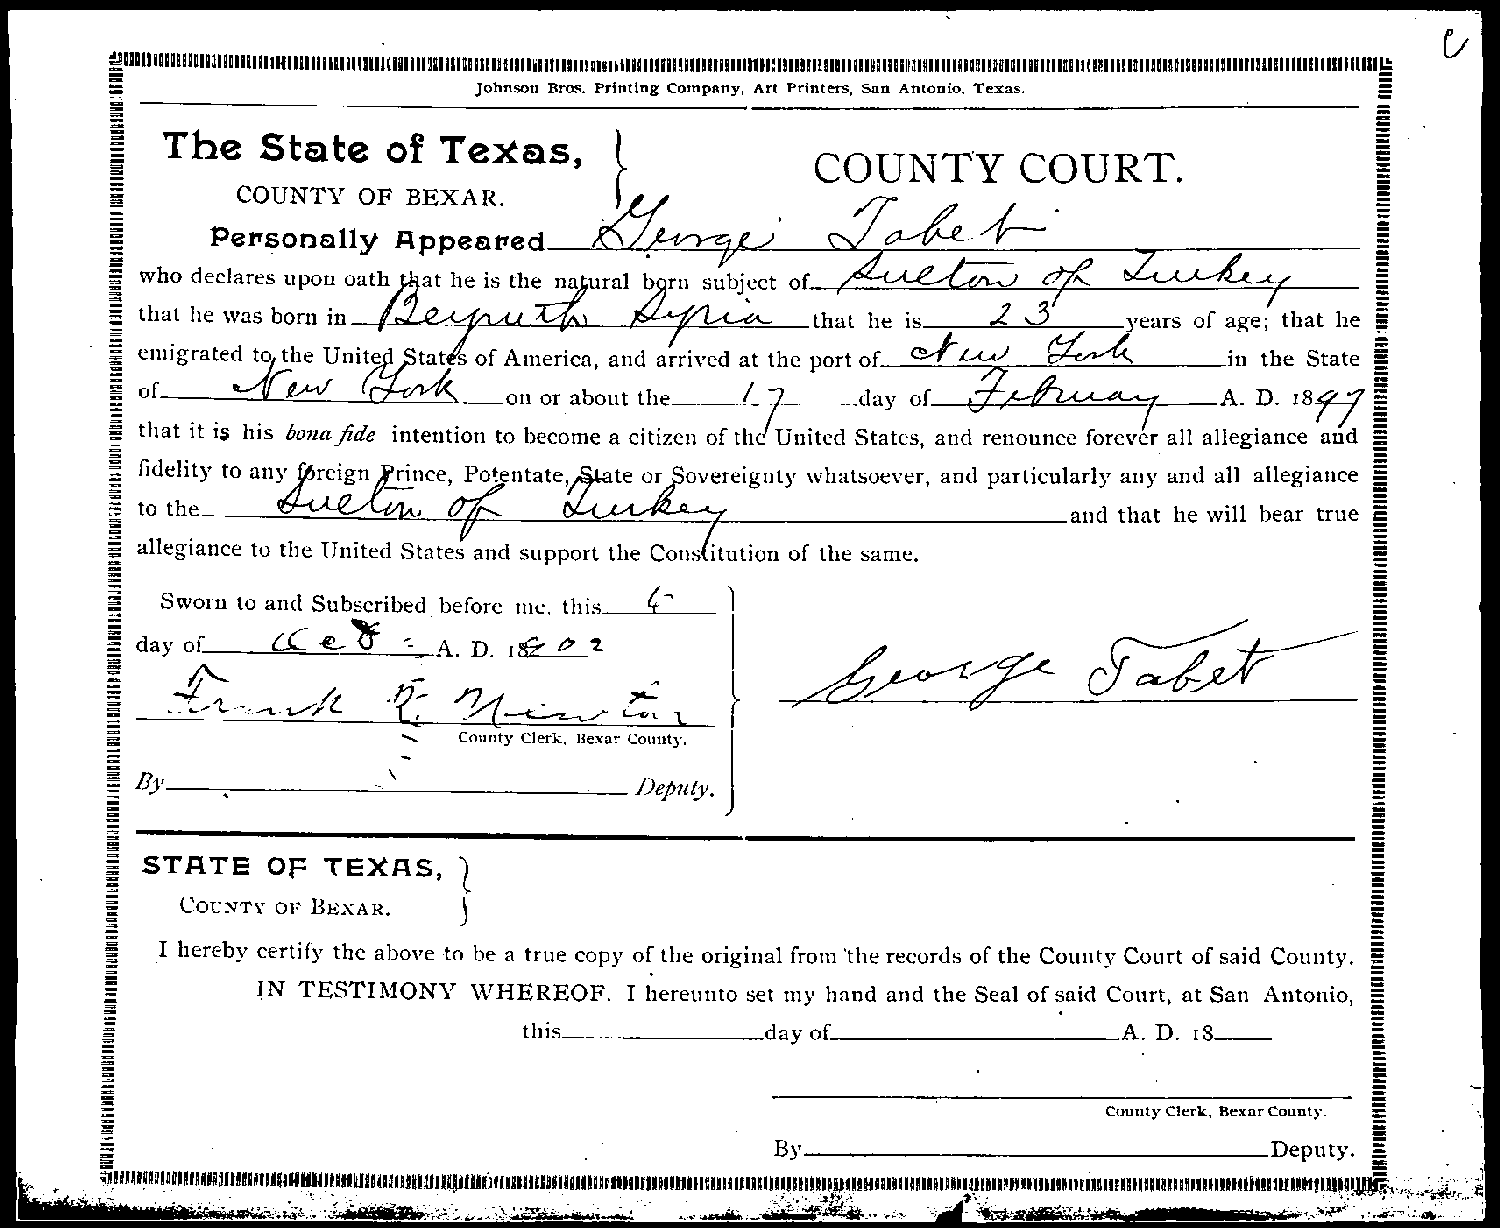 Johnson Bros. Printing Company, Art Printers, San Antonio, Texas.
The State of Texas,
COUNTY OF BEXAR.
COUNTY COURT.
Personally Appeared George Tabet
who declares upon oath that he is the natural born subject of Sulton of Turkey
that he was born in Beyruth Syria that he is 23 years of age; that he
emigrated to the United States of America, and arrived at the port of New York in the State
of New York on or about the 17 day of February A. D. 1897
that it is his bona fide intention to become a citizen of the United States, and renounce forever all allegiance and
fidelity to any foreign Prince, Potentate, State or Sovereignty whatsoever, and particularly any and all allegiance
to the Sulton of Turkey and that he will bear true
allegiance to the United States and support the Constitution of the same.
Sworn to and Subscribed before me, this
day of Oct A. D. 1902
George Tabet
Frank R Newton
County Clerk, Bexar County.
By Deputy.
STATE OF TEXAS,
COUNTY OF BEXAR.
I hereby certify the above to be a true copy of the original from the records of the County Court of said County.
IN TESTIMONY WHEREOF, I hereunto set my hand and the Seal of said Court, at San Antonio,
this day of A. D. 18
County Clerk, Bexar County.
By Deputy.